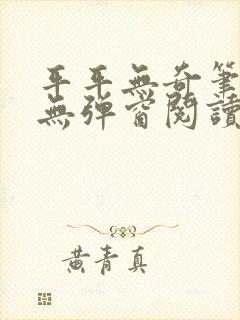 平平無奇筆
無彈窗閱讀
黃青真